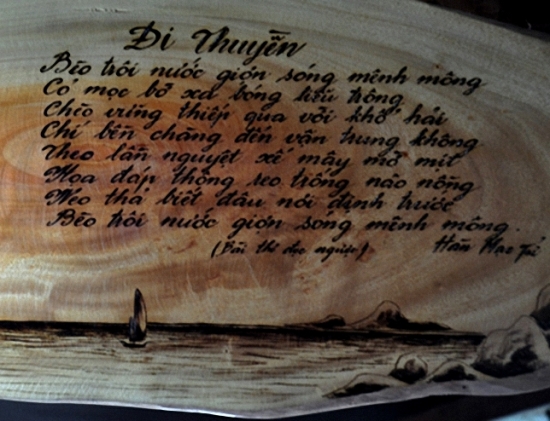 Đi Thuyền
Bèo trôi nước giợn sóng mênh mông
Cỏ mọc bờ xa bóng liễu trông
Chèo vững thiếp qua vời khổ hải
Chí bền chàng đến vận trung không
Theo lần nguyệt xế mây mờ mịt
Họa đáp thông reo trông não nồng
Neo thả biết đâu nơi định trước
Bèo trôi nước giợn sóng mênh mông.
(Bài thơ đọc ngược) Hàn Mạc Tử